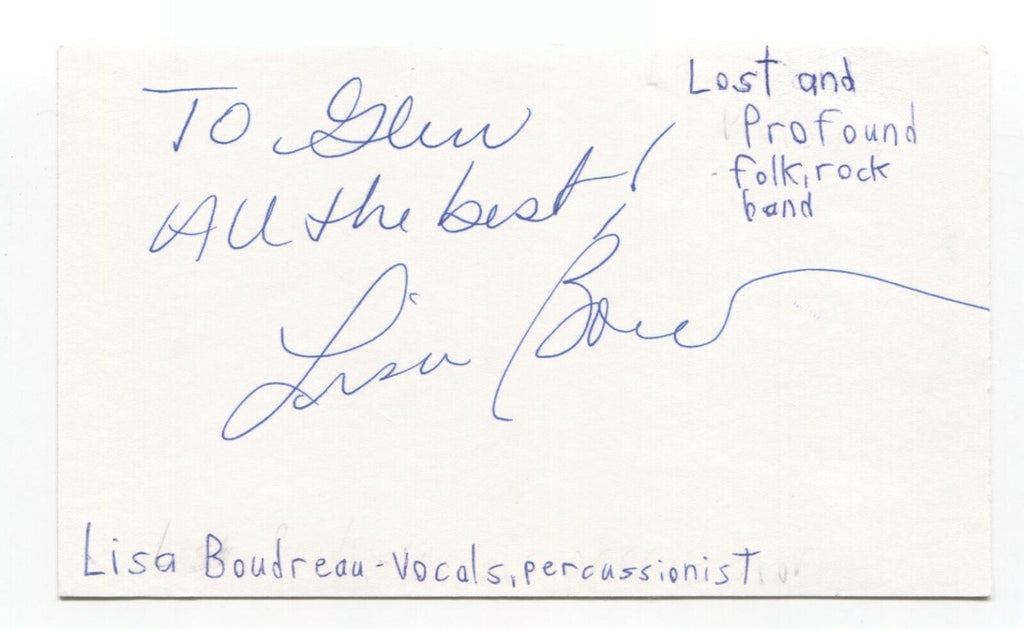 To Glen
All the best!
Lisa Bou
Lost and
Profound
folk, rock
band
Lisa Boudreau - Vocals, percussionist